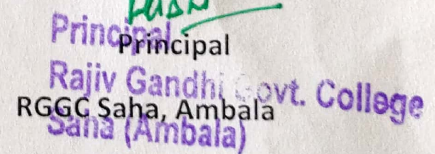 Principal
Principal
Rajiv Gandhi Govt. College
RGGC Saha, Ambala
Saha (Ambala)